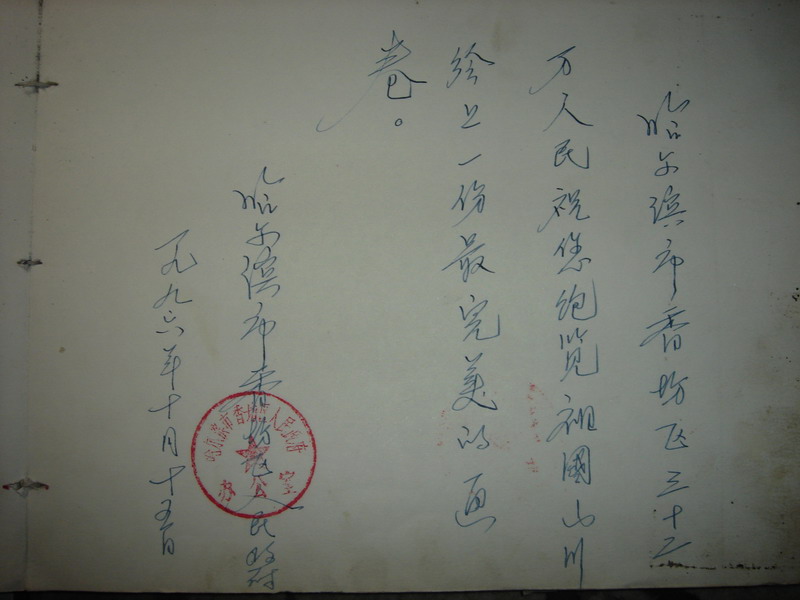 哈尔滨市香坊区三十二
万人民祝您饱览祖國山川
绘上一份最完美的画
卷。
哈尔滨市香坊区人民政府
一九九六年十月十五日
哈尔滨市香坊区人民政府
办公室